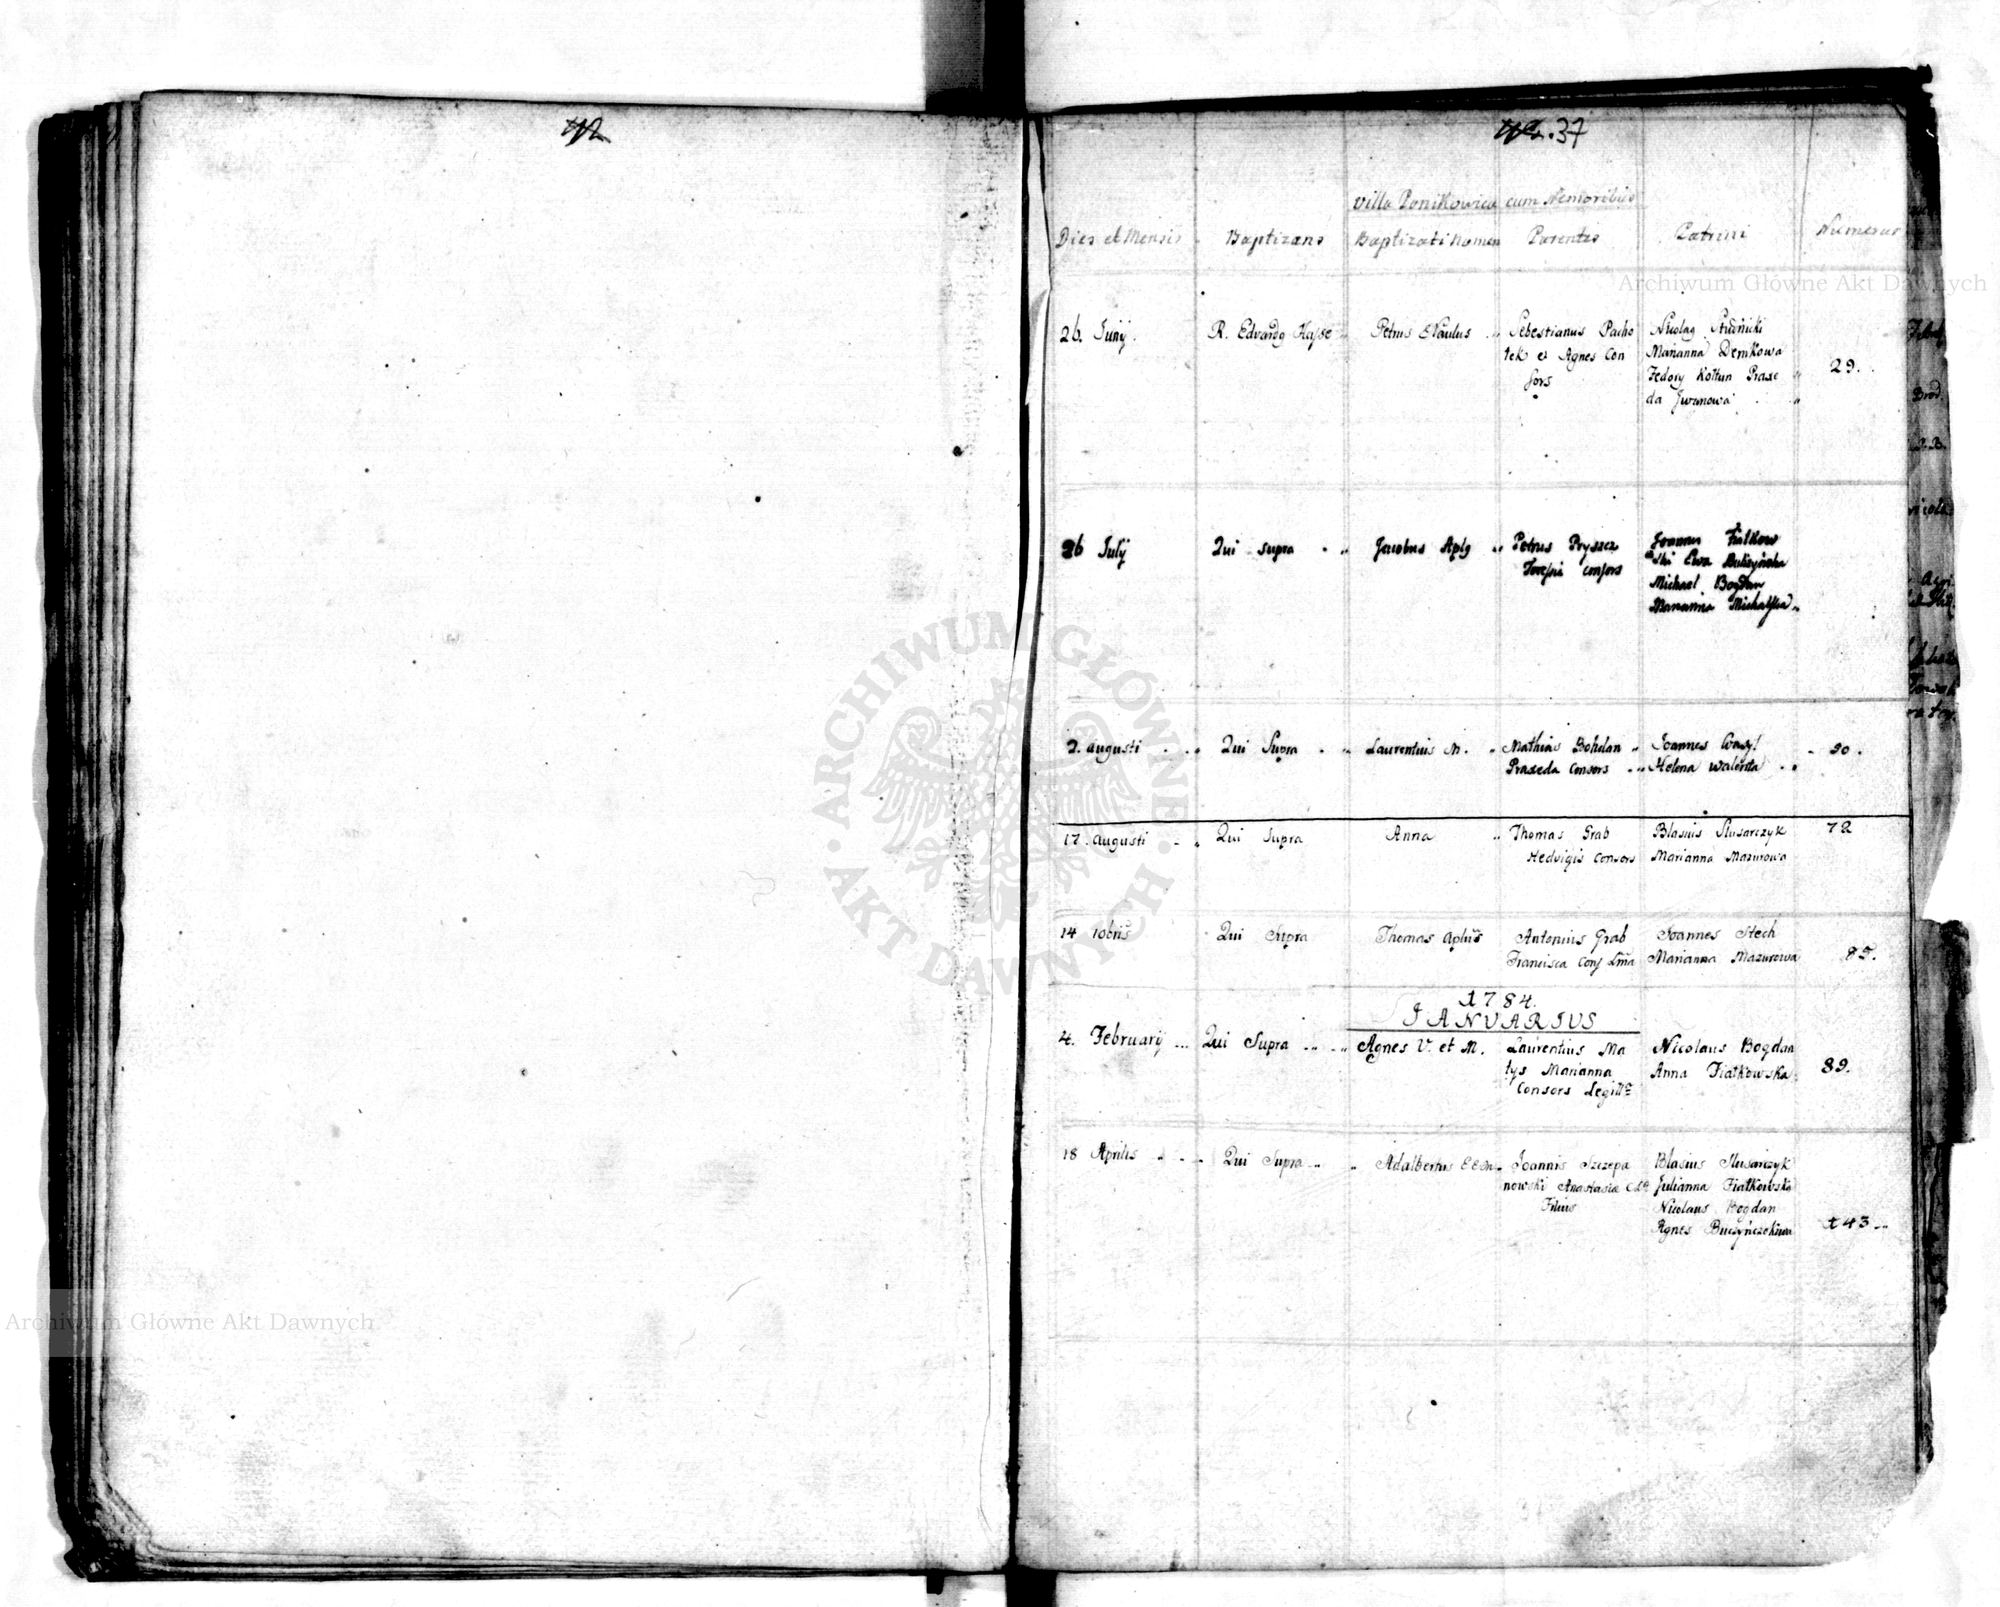 37
Villa Ponikowica cum Nemoribus
Dies et Mensis Baptizans Baptizati Nomen Parentes Patrini Numerus
Archiwum Główne Akt Dawnych
26. Junij. R. Edvardg Petrus Sebestianus Pacho
tek et Agnes Con
sors
Nicolag
Marianna Demkowa
Fedory Koltun Praxe
da Jwanowa
29.
26 Julij Qui supra Jacobus Aplg Petrus Pryszcz
consors
Joannes Fiałkow
ski Ewa
Michael Bogdan
Marianna
2. Augusti Qui Supra Laurentius M. Mathias Bohdan
Praxeda Consors
Joannes Wasyl
Helena
17. Augusti Qui Supra Anna Thomas Grab
Hedvigis Consors
Blasius Slusarczyk
Marianna Mazurowa
72
14 10bris Qui Supra Thomas Aplus Antonius Grab
Francisca Conj Lma
Joannes Stech
Marianna Mazurowa
85.
1784.
JANUARIUS
4. February Qui Supra Agnes V. et M. Laurentius Ma
tys Marianna
Consors
Nicolaus Bogdan
Anna Fiałkowska
89.
18 Aprilis Qui Supra Adalbertus Joannis Szczepa
nowski Anastasiæ
Filius
Blasius Slusarczyk
Julianna Fiałkowska
Nicolaus Bogdan
Agnes
143
ARCHIWUM GŁÓWNE
AKT DAWNYCH
Archiwum Główne Akt Dawnych